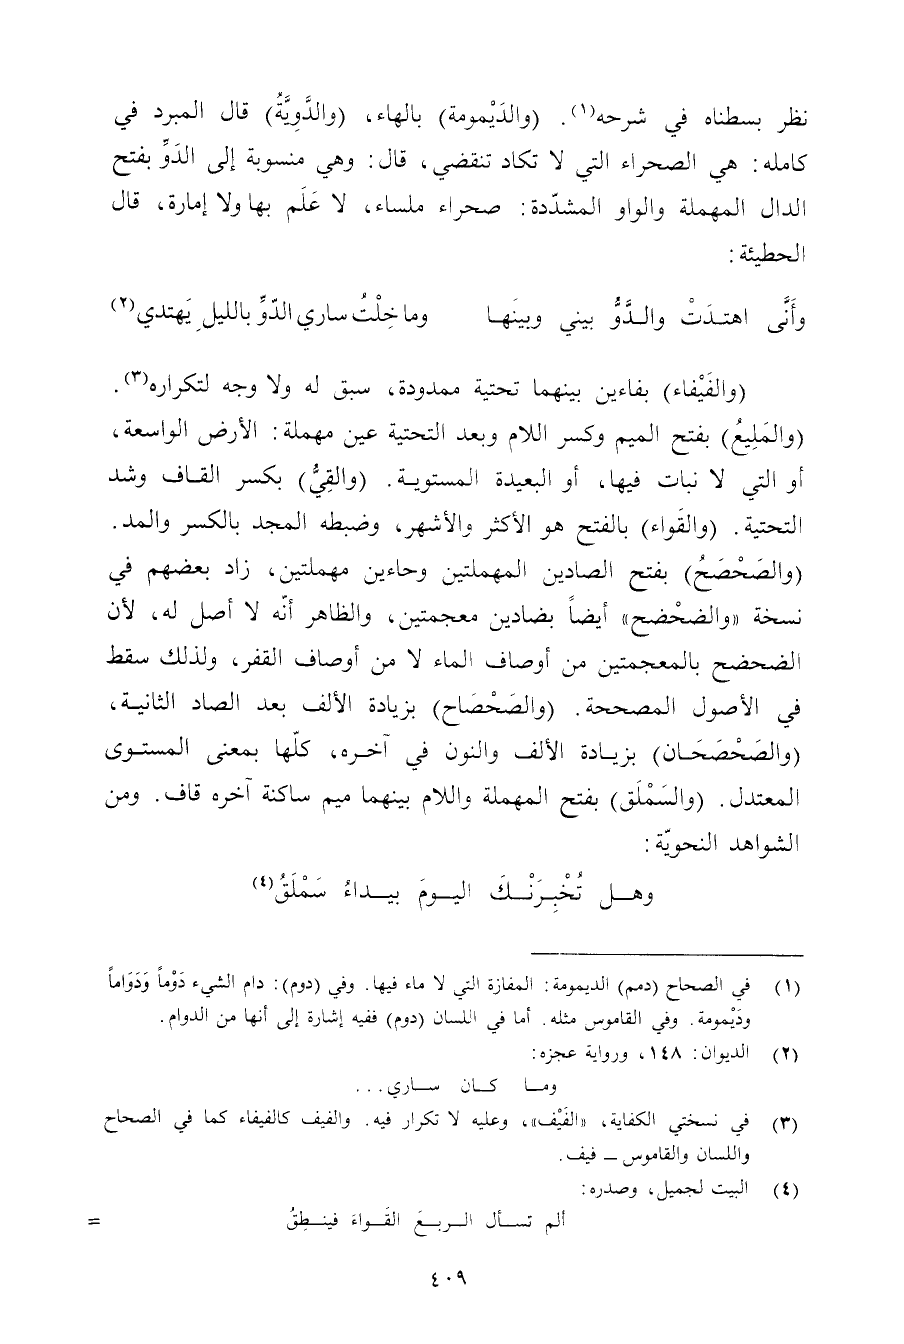 نظر بسطناه في شرحه(١). (والدَيْمومة) بالهاء، (والدَّوِيَّةُ) قال المبرد في
كامله: هي الصحراء التي لا تكاد تنقضي، قال: وهي منسوبة إلى الدَوِّ بفتح
الدال المهملة والواو المشدّدة: صحراء ملساء، لا عَلَم بها ولا إمارة، قال
الحطيئة:
وأَنَّى اهتدَتْ والدَّوُّ بيني وبينَها وما خِلْتُ ساري الدّوِّ بالليلِ يَهتدي(٢)
(والفَيْفاء) بفاءين بينهما تحتية ممدودة، سبق له ولا وجه لتكراره(٣).
(والمَلِيعُ) بفتح الميم وكسر اللام وبعد التحتية عين مهملة: الأرض الواسعة،
أو التي لا نبات فيها، أو البعيدة المستوية. (والقِيُّ) بكسر القاف وشد
التحتية. (والقَواء) بالفتح هو الأكثر والأشهر، وضبطه المجد بالكسر والمد.
(والصَحْصَحُ) بفتح الصادين المهملتين وحاءين مهملتين، زاد بعضهم في
نسخة «والضحْضح» أيضاً بضادين معجمتين، والظاهر أنّه لا أصل له، لأن
الضحضح بالمعجمتين من أوصاف الماء لا من أوصاف القفر، ولذلك سقط
في الأصول المصححة. (والصَحْصَاح) بزيادة الألف بعد الصاد الثانية،
(والصَحْصَحَان) بزيادة الألف والنون في آخره، كلّها بمعنى المستوى
المعتدل. (والسَمْلَق) بفتح المهملة واللام بينهما ميم ساكنة آخره قاف. ومن
الشواهد النحويّة:
وهل تُخْبِرَنْكَ اليومَ بيداءُ سَمْلَقُ(٤)
(١) في الصحاح (دمم) الديمومة: المفازة التي لا ماء فيها. وفي (دوم): دام الشيء دَوْماً وَدَوَاماً
ودَيْمومة. وفي القاموس مثله. أما في اللسان (دوم) ففيه إشارة إلى أنها من الدوام.
(٢) الديوان: ١٤٨، ورواية عجزه:
وما كان ساري...
(٣) في نسختي الكفاية، «الفَيْف»، وعليه لا تكرار فيه. والفيف كالفيفاء كما في الصحاح
واللسان والقاموس – فيف.
(٤) البيت لجميل، وصدره:
ألم تسأل الربعَ القَواءَ فينطِقُ =
٤٠٩